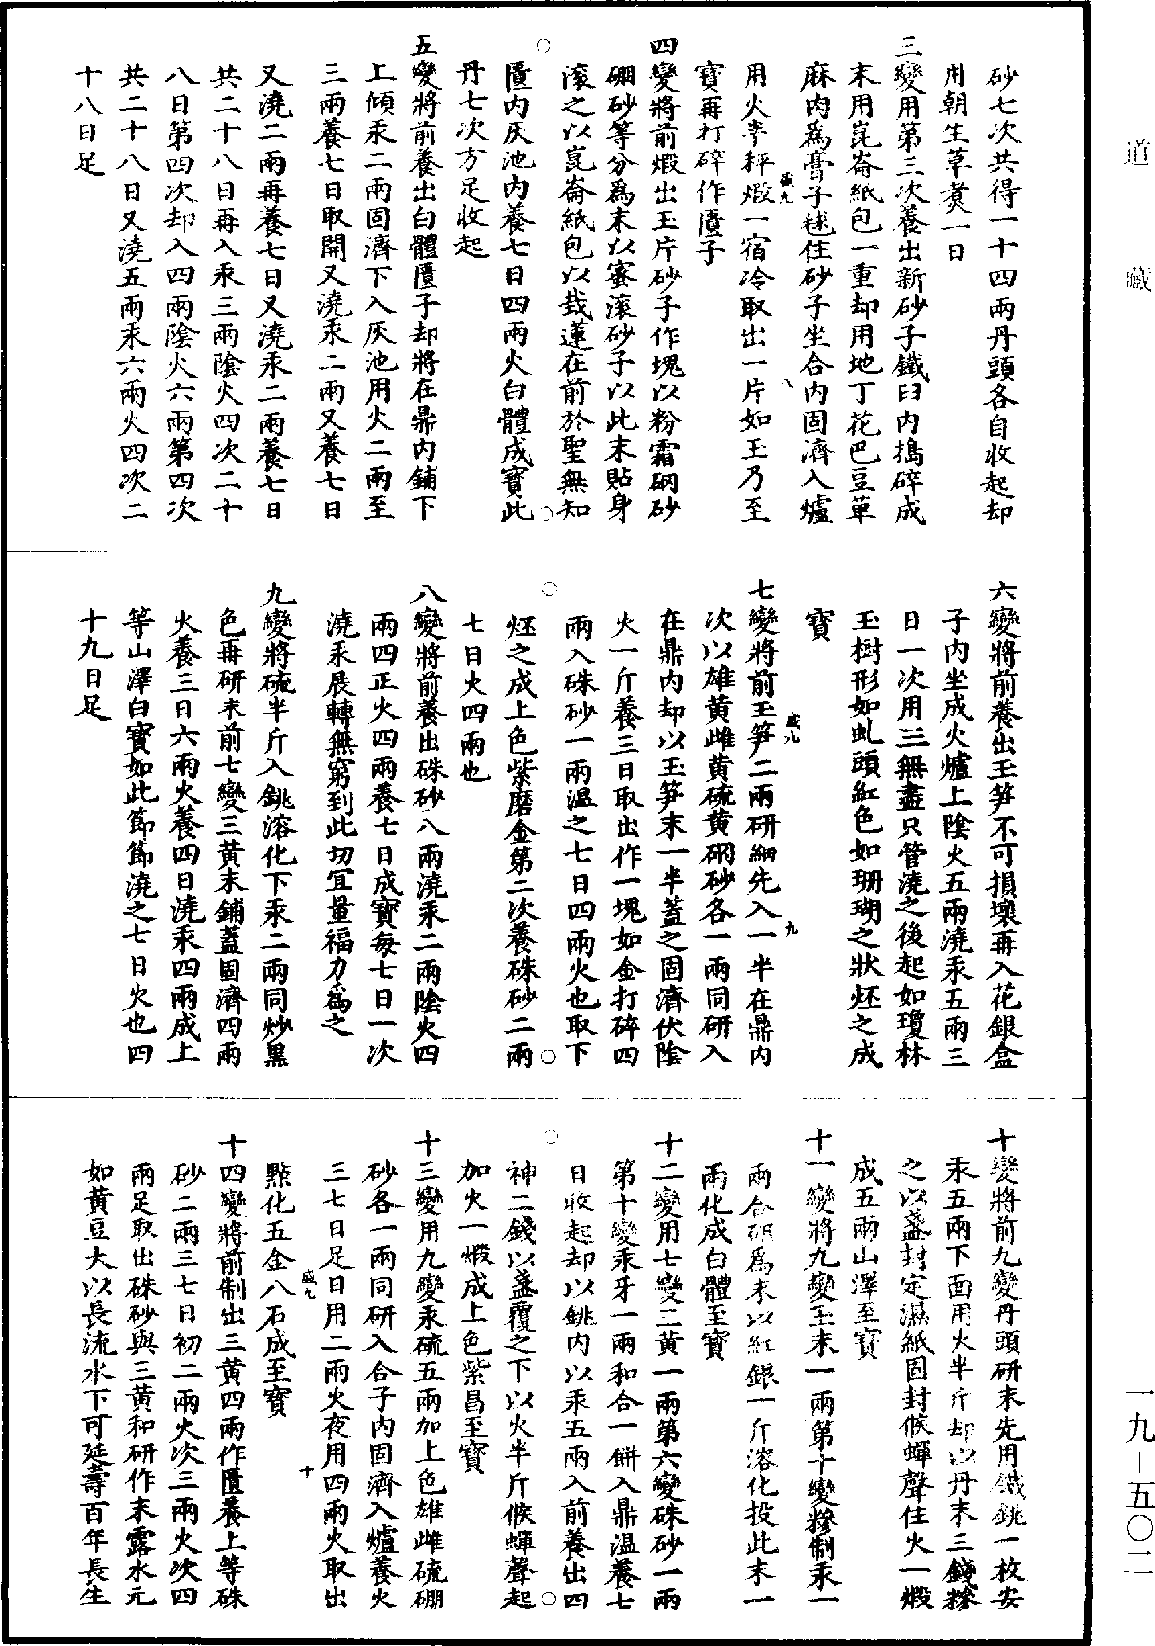 砂七次共得一十四兩丹頭各自收起却
用朝生草煑一日
三變用第三次養出新砂子鐵臼内搗碎成
末用崑崙紙包一重却用地丁花巴豆萆
麻肉爲膏子毬住砂子坐合内固濟入爐
用火半秤煅一宿冷取出一片如玉乃至
寶再打碎作匱子
四變將前煅出玉片砂子作塊以粉霜硇砂
硼砂等分爲末以蜜滚砂子以此末貼身
滚之以崑崙紙包以栽蓮在前於聖無知
匱内灰池内養七日四兩火白體成寶此
丹七次方足收起
五變將前養出白體匱子却將在鼎内鋪下
上傾汞二兩固濟下入灰池用火二兩至
三兩養七日取開又澆汞二兩又養七日
又澆二兩再養七日又澆汞二兩養七日
共二十八日再入汞三兩陰火四次二十
八日第四次却入四兩陰火六兩第四次
共二十八日又澆五兩汞六兩火四次二
十八日足
六變將前養出玉笋不可損壞再入花銀盒
子内坐成火爐上陰火五兩澆汞五兩三
日一次用三無盡只管澆之後起如瓊林
玉樹形如虬頭紅色如珊瑚之狀烀之成
寶
七變將前玉笋二兩研細先入一半在鼎内
次以雄黄雌黄硫黄硇砂各一兩同研入
在鼎内却以玉笋末一半蓋之固濟伏陰
火一斤養三日取出作一塊如金打碎四
兩入硃砂一兩温之七日四兩火也取下
烀之成上色紫磨金第二次養硃砂二兩
七日火四兩也
八變將前養出硃砂八兩澆汞二兩陰火四
兩四正火四兩養七日成寶每七日一次
澆汞展轉無窮到此切宜量福力爲之
九變將硫半斤入銚溶化下汞二兩同炒黑
色再研末前七變三黄末鋪蓋固濟四兩
火養三日六兩火養四日澆汞四兩成上
等山澤白寶如此節節澆之七日火也四
十九日足
十變將前九變丹頭研末先用鐵銚一枚安
汞五兩下面用火半斤却以丹末三錢糝
之以盞封定濕紙固封候蟬聲住火一煅
成五兩山澤至寶
十一變將九變玉末一兩第十變糝制汞一
兩合研爲末以紅銀一斤溶化投此末一
兩化成白體至寶
十二變用七變三黄一兩第六變硃砂一兩
第十變汞牙一兩和合一餅入鼎温養七
日收起却以銚内以汞五兩入前養出四
神二錢以盞覆之下以火半斤候蟬聲起
加火一煅成上色紫昌至寶
十三變用九變汞硫五兩加上色雄雌硫硼
砂各一兩同研入合子内固濟入爐養火
三七日足日用二兩火夜用四兩火取出
點化五金八石成至寶
十四變將前制出三黄四兩作匱養上等硃
砂二兩三七日初二兩火次三兩火次四
兩足取出硃砂與三黄和研作末露水元
如黄豆大以長流水下可延壽百年長生
道藏
一九—五〇二